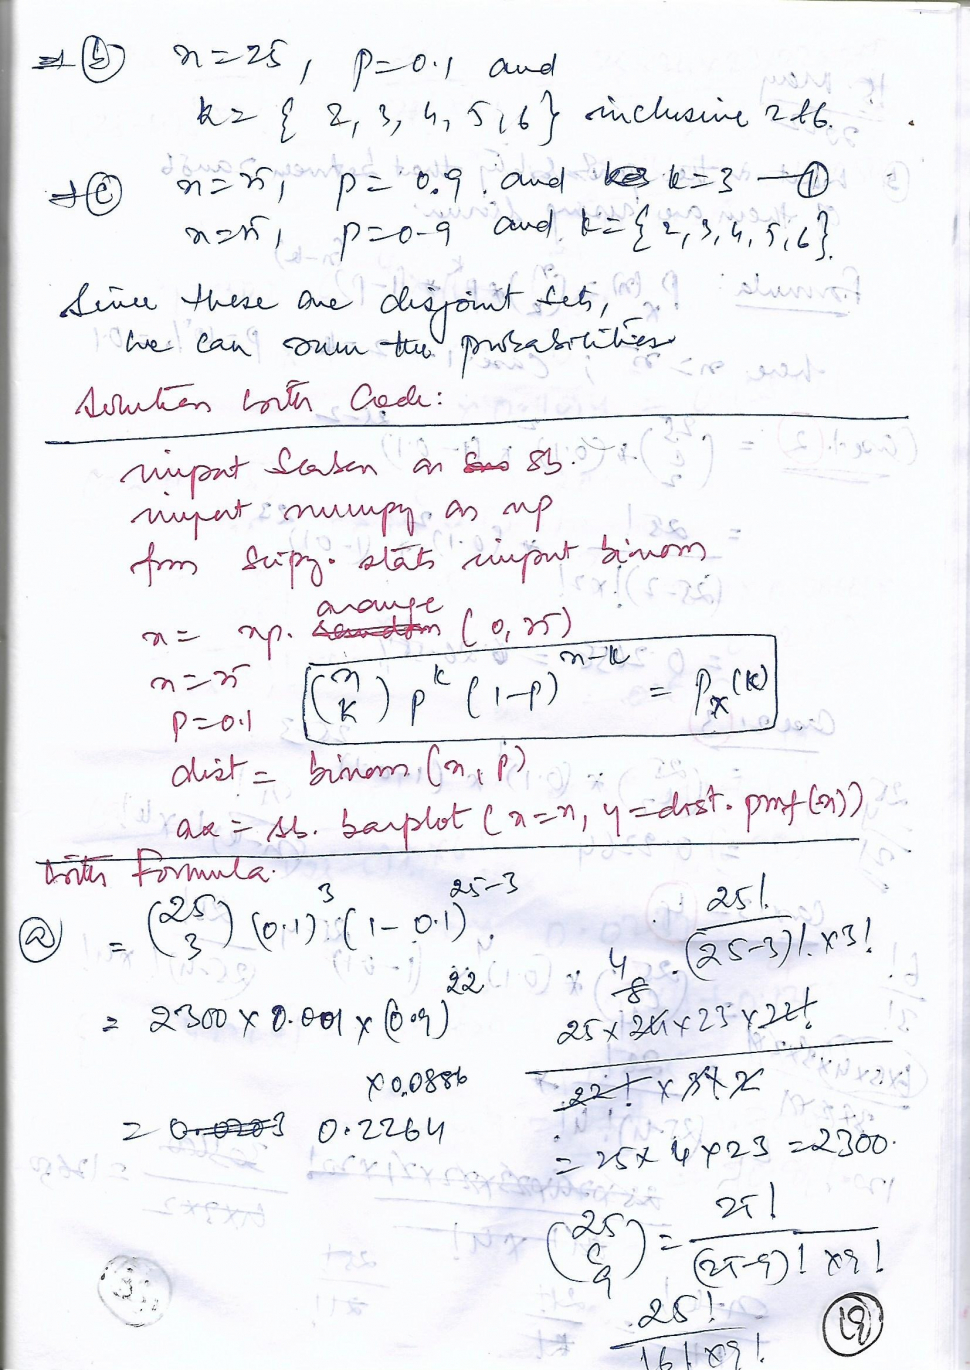 ⇒ (b) n=25, p=0.1 and
k= { 2, 3, 4, 5, 6} inclusive 2 & 6.
→ (c) n=25, p= 0.9 . and k=3 — ①
n=25, p=0.9 and k={2,3,4,5,6}.
Since these are disjoint sets,
we can sum the probabilities
Solution with Code:
import seaborn as sb.
import numpy as np
from scipy. stats import binom
x= np. arange (0, 25)
n=25
(n k) p^k (1-p)^n-k = P_X(k)
P=0.1
dist= binom (n, p)
ax= sb. barplot ( x=x, y=dist. pmf(x))
With Formula.
(a) = (25 3) (0.1)^3 (1- 0.1)^25-3.
= 2300 x 0.001 x (0.9)^22
x 0.0886
= 0.2264
25! / (25-3)! x 3!
4
8
25 x 24 x 23 x 22! / 22! x 3 x 2
= 25 x 4 x 23 = 2300.
(25 C 9) = 25! / (25-9)! x 9!
25! / 16! x 9!
(19)